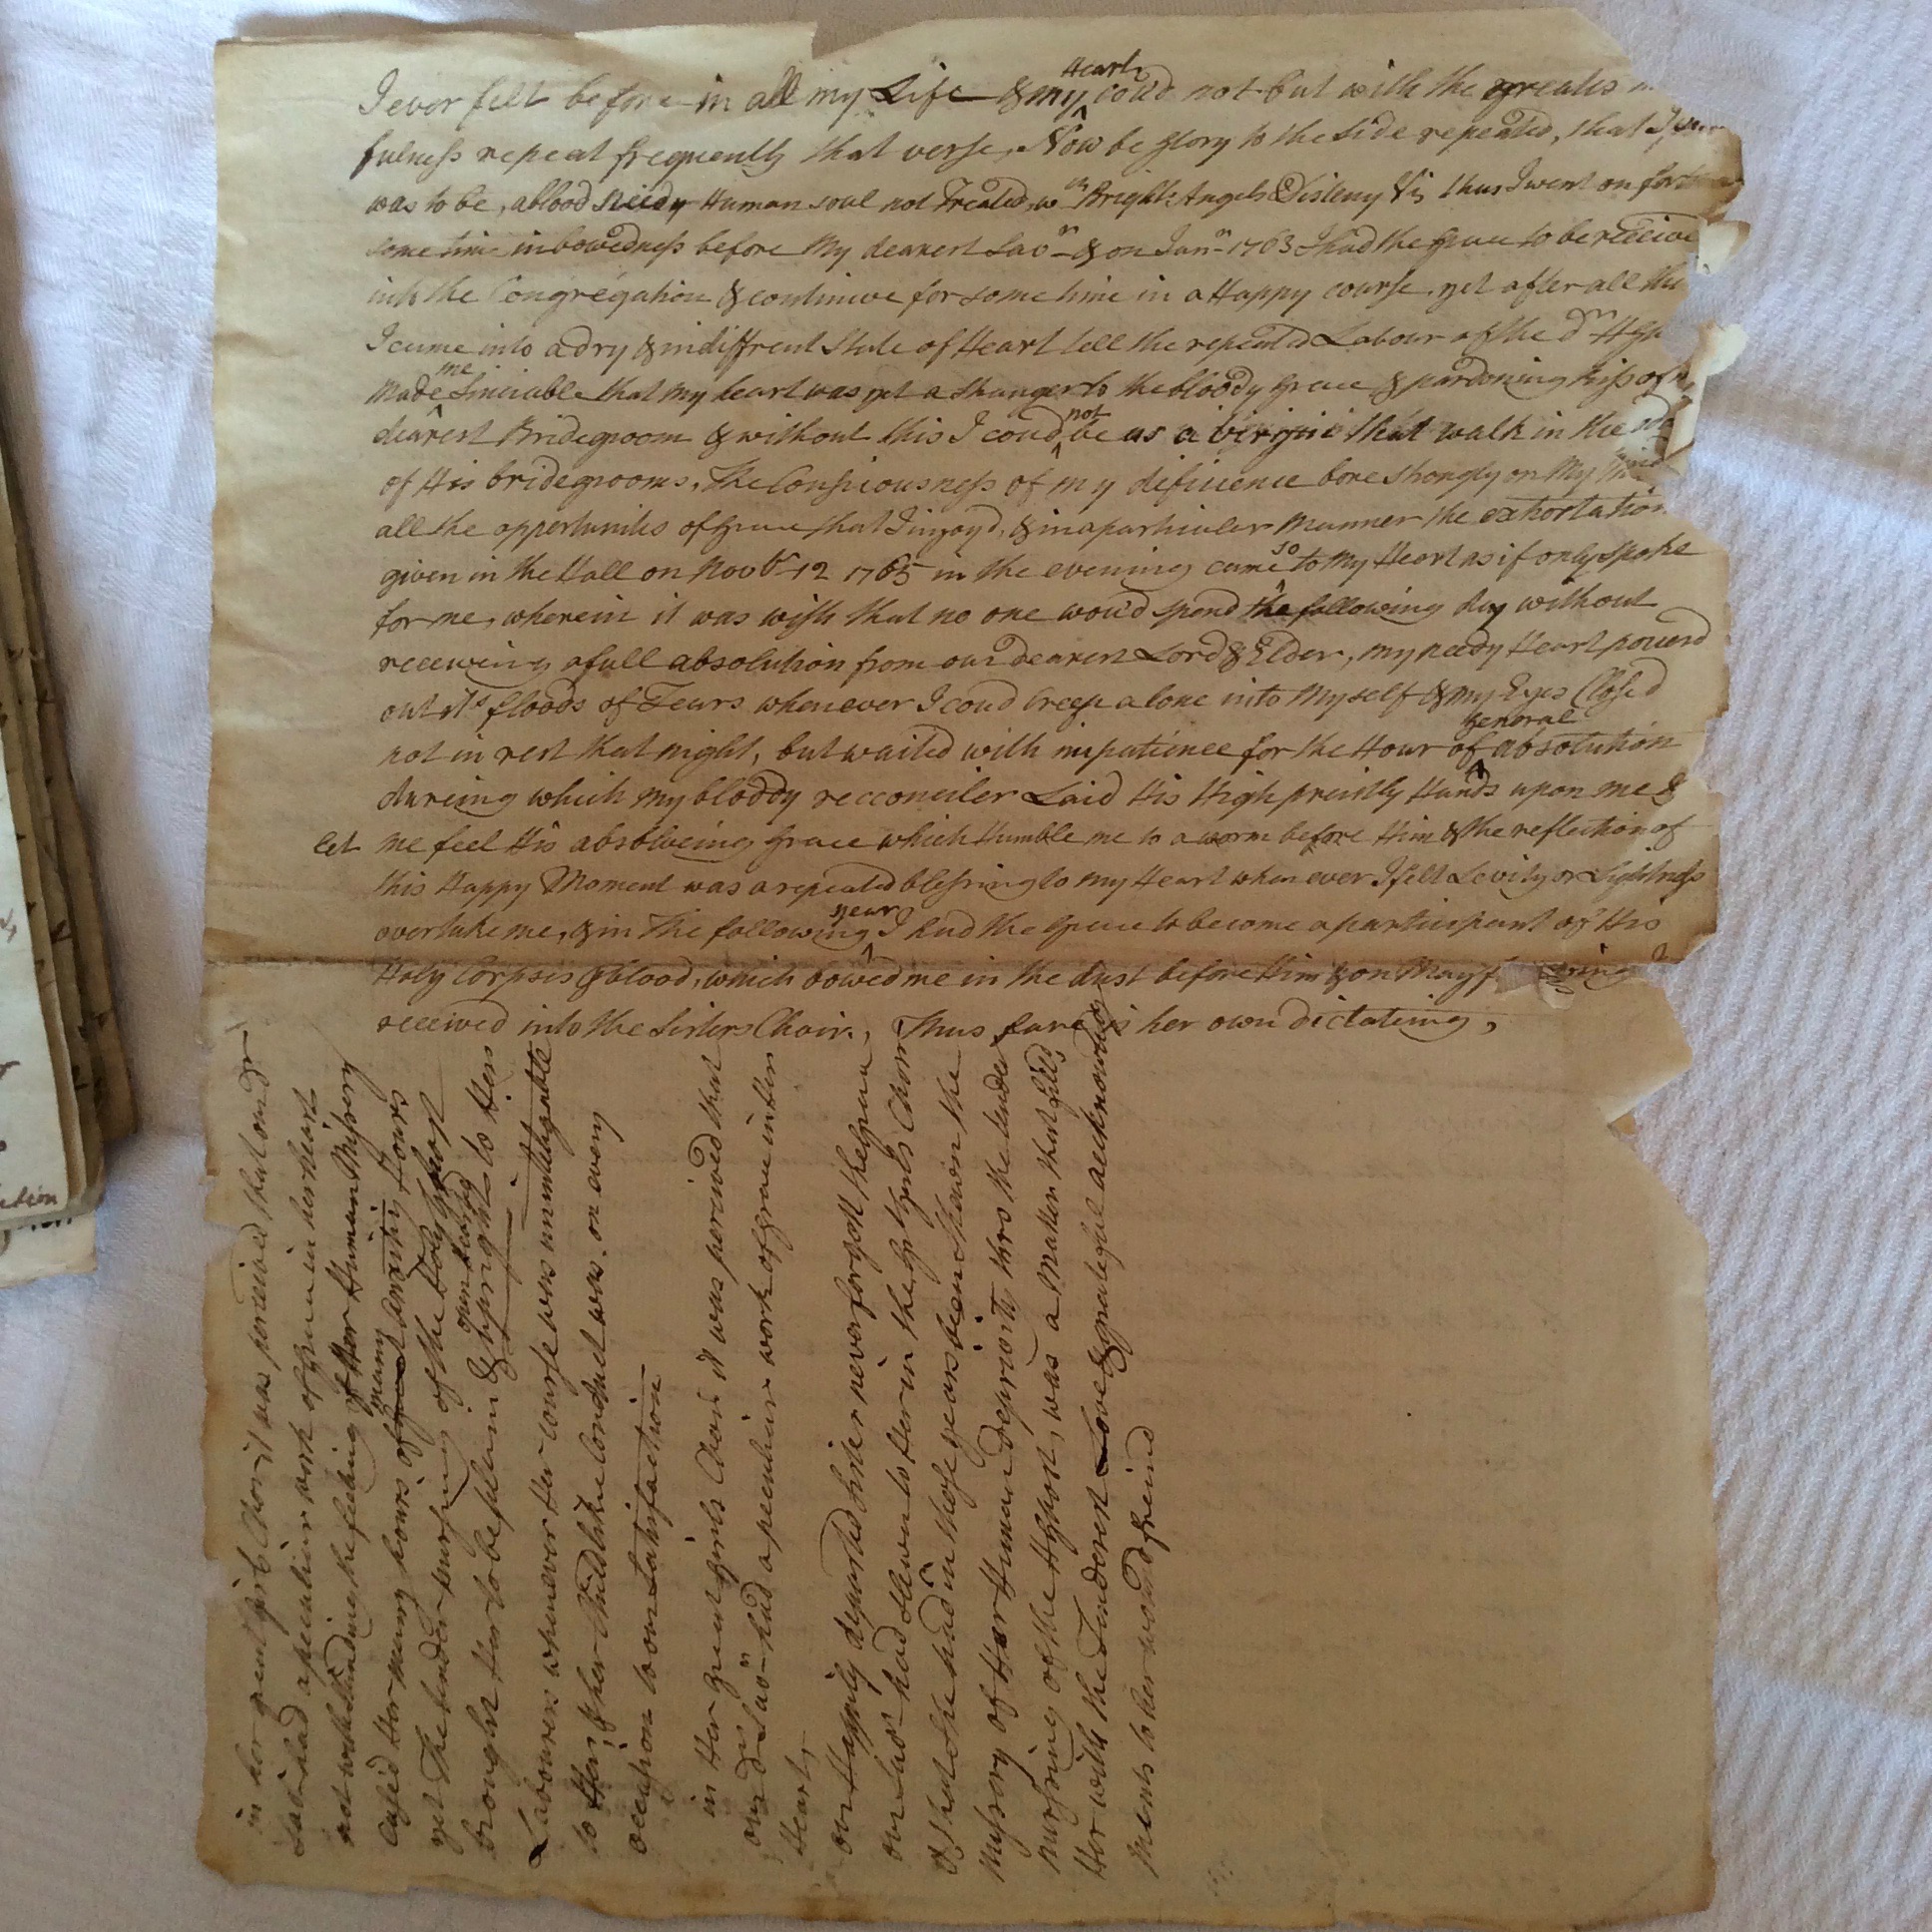 I ever felt before in all my Life & my Heart coud not but with the greates
fulness repeat frequently that verse, Now be glory to the Side repeated, that I
was to be, a blood needy Human soul not Treated, wth Bright Angels Desteny &c, thus I went on for
some time in bowedness before My dearest Savr & on Janr 1763 I had the Grace to be receive
into the Congregation & continue for some time in a Happy course, yet after all this
I came into a dry & indiffrent State of Heart tell the repeated Labour of the dr H Gh
Made me Sinciable that my heart was yet a stranger to the bloody Grace & pardoning kiss of
dearest Bridegroom & without this I coud not be as a virgin that walk in the
of His bridegrooms, The Consciousness of my deficience bore strongly on My Mind
all the oppertunites of Grace that I injoyd, & in a particuler Manner the exhortation
given in the Hall on Novbr 12 1765 in the evening came so to My Heart as if only spoke
for me, wherein it was wish that no one woud spend the following day without
receiving a full absolution from our dearest Lord & Elder, my needy Heart powerd
out its floods of Tears whenever I coud creep alone into My self & my Eyes Closed
not in rest that night, but waited with inpatience for the Hour of general absolution
dureing which My bloody recconciler Laid His High priestly Hands upon me &
let me feel His absolveing Grace which Humble me to a worm before Him & the reflection of
this Happy Moment was a repeated blessing to My Heart when ever I felt Levity or Lightness
over take me, & in The following year I had the Grace to become a participant of His
Holy Corpses & blood, which bowed me in the dust before Him & on May
received into the Sisters Choir, Thus fare is her own dictateing,
in her great girls Choir it was perceived that our dr
Savr had a peculiar work of Grace in her heart
not withstanding the feeling of Her Human Missery
Causd Her many hours of many anxity hours
yet The tender nursing of the Holy Ghost
brought Her to be plain open hearted & upright to Her
Labourers whenever Her course was unmitagable
to Her, & her Childlike Conduct was on every
occasion to our Satisfaction
in Her great girls Choir it was perceived that
our dr Savr had a peculiar work of Grace in Her
Heart,
our Happily departed Sister never forgott the Grace
our Savr had shewn to Her in the great Girls Choir
& that She had in those years been Shewn the
Missery of Her Human depravity thro the tender
nursing of the H Ghost, was a Matter that filld
Her with the Tenderest Love & grateful acknowledg
ments to her wound freind